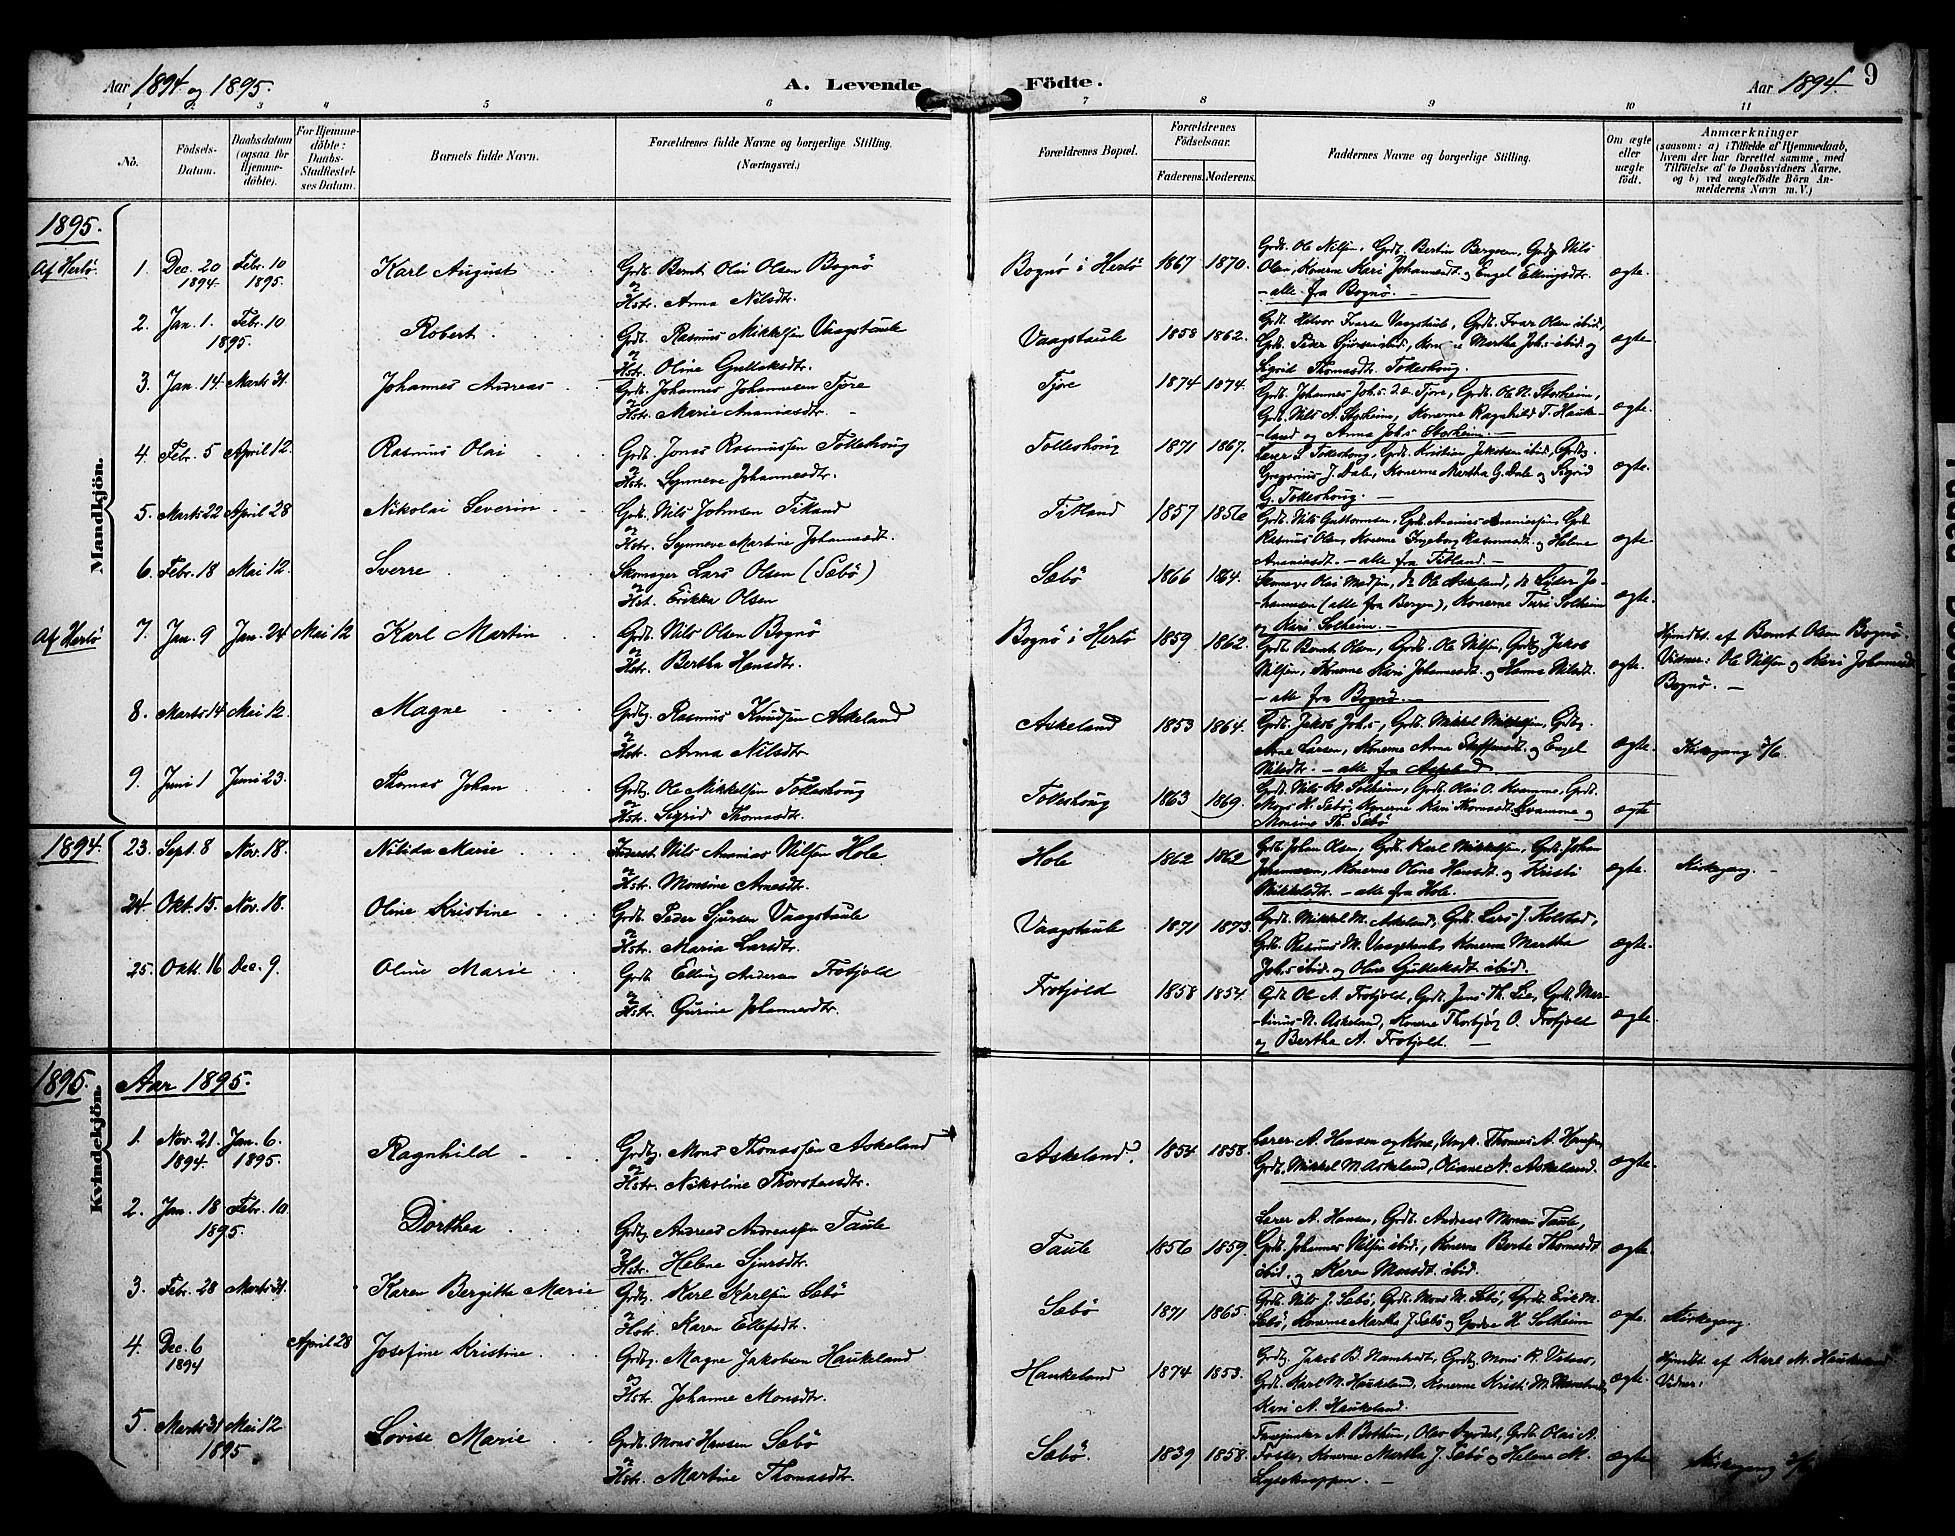 Aar 1894 og 1895. A. Levende Födte. Aar 1894. 9
1 2 3 4 5 6 7 8 9 10 11
No.
Födsels-Datum.
Daabsdatum (ogsaa for Hjemme-döbte).
For Hjemme-döbte: Daabs-Stadfæstel-ses Datum.
Barnets fulde Navn.
Forældrenes fulde Navne og borgerlige Stilling. (Næringsvei.)
Forældrenes Bopæl.
Forældrenes Födselsaar.
Faderens. Moderens.
Faddernes Navne og borgerlige Stilling.
Om ægte eller uægte födt.
Anmærkninger
(saasom: a) i Tilfælde af Hjemmedaab,
hvem der har forrettet samme, med
Tilföielse af to Daabsvidners Navne,
og b) ved uægtefödte Börn An-
melderens Navn m. V.)
1895.
Mandkjön.
Af Herlö. 1. Dec. 20 1894. Febr. 10 1895. Karl August Grdb. Bernt Olai Olsen Bognö
og Hstr. Anna Nilsdtr.
Bognö i Herlö 1867 1870. Grdb. Ole Nilsen, Grdb. Bertin Bergsen, Grdg. Nils
Olsen, Konerne Kari Johannesdt. og Engel Ellingsdtr.
– alle fra Bognö. – ægte.
2. Jan. 1. 1895. Febr. 10 Robert Grdb. Rasmus Mikkelsen Vaagstaule
og Hstr. Oline Gulleksdtr.
Vaagstaule 1858 1862. Grdb. Halvor Ivarsen Vaagstaule, Grdb. Ivar Olsen ibid,
Grdb. Peder Sjursen ibid, Martha Joh.s ibid og
Sigrid Thomasdt. Tolleshoug. ægte.
3. Jan. 14 Marts 31. Johannes Andreas Grdb. Johannes Johannesen Tjore
og Hstr. Marie Ananiasdtr.
Tjore 1874 1874. Grdb. Johannes Joh.s Tjore, Grdb. Ole N. Storheim,
Grdb. Nils A. Storheim, Konerne Ragnhild T. Hauke-
land og Anna Joh.s Storheim. ægte.
4. Febr. 5 April 12. Rasmus Olai Grdb. Jonas Rasmussen Tolleshoug
og Hstr. Synneve Johannesdtr.
Tolleshoug 1871 1867. Lærer S. Tolleshoug, Grdb. Kristian Jakobsen ibid, Grdg.
Gregorius J. Dale, Konerne Martha G. Dale og Sigrid
G. Tolleshoug. ægte.
5. Marts 22 April 28 Nikolai Severin Grdb. Nils Johnsen Titland
og Hstr. Synneve Martine Johannesdt.
Titland 1857 1856 Grdb. Nils Guttormsen, Grdb. Ananias Ananiassen, Grdb.
Rasmus Olsen, Konerne Ingeborg Rasmusdt. og Helene
Ananiasdt. – alle fra Titland. – ægte.
6. Febr. 18 Mai 12. Sverre Skomager Lars Olsen (Sæbö)
og Hstr. Erikka Olsen
Sæbö 1866 1864. Skomager Olai Madsen, do Ole Askeland, do Jo-
hannesen (alle fra Bergen), Konerne Turi Solheim
og Kari Solheim. – ægte.
Af Herlö 7. Jan. 9 Jan. 24 Mai 12 Karl Martin Grdb. Nils Olsen Bognö
og Hstr. Bertha Hansdtr.
Bognö i Herlö 1859 1862. Grdb. Bernt Olsen, Grdb. Ole Nilsen, Grdg. Jakob
Nilsen, Konerne Kari Johannesdt. og Hanna Nilsdt.
– alle fra Bognö. – ægte. Hjmdbt. af Bernt Olsen Bognö.
Vidner: Ole Nilsen og Kari Johannesdt.
Bognö. –
8. Marts 14 Mai 12. Magne Grdbg. Rasmus Knudsen Askeland
og Hstr. Anna Nilsdtr.
Askeland 1853 1864. Grdb. Jakob Joh.s, Grdb. Mikkel Mikkelsen, Grdbg.
Arne Larsen, Konerne Anna Steffensdt. og Engel
Nilsdtr. – alle fra Askeland. ægte. Kirkegang 3/6.
9. Juni 1 Juni 23. Thomas Johan Grdbg. Ole Mikkelsen Tolleshoug
og Hstr. Sigrid Thomasdtr.
Tolleshoug 1863 1869. Grdb. Nils K. Solheim, Grdb. Olai O. Kvamme, Grdb.
Mons H. Sæbö, Konerne Kari Thomasdt. Kvamme og
Monsine Th. Sæbö ægte
1894.
Kvindekjön.
23. Sept. 8 Nov. 18. Nilida Marie Inderst. Nils Ananias Nilsen Hole
og Hstr. Monsine Arnesdtr.
Hole 1862 1862 Grdb. Johan Olsen, Grdb. Karl Mikkelsen, Grdb. Johan
Johannesen, Konerne Oline Hansdt. og Kristi
Mikkelsdt. – alle fra Hole. ægte. Kirkegang. –
24. Okt. 15. Nov. 18. Oline Kristine Grdb. Peder Sjursen Vaagstaule
og Hstr. Maria Larsdtr.
Vaagstaule 1871 1873. Grdb. Mikkel M. Askeland, Grdb. Lars J. Kolstad,
Grdb. Rasmus M. Vaagstaule, Konerne Martha
Joh.s ibid. og Oline Gulleksdt. ibid. ægte.
25. Okt. 16 Dec. 9. Oline Marie Grdb. Elling Andersen Frotjold
og Hstr. Gurine Johannesdtr.
Frotjold 1858 1854. Grdb. Ole A. Frotjold, Grdb. Jens Th. Lie, Grdb. Mar-
tinus N. Askeland, Konerne Thorbjög O. Frotjold
og Bertha A. Frotjold. – ægte.
1895. Aar 1895.
1. Nov. 21 1894. Jan. 6. 1895. Ragnhild Grdbg. Mons Thomassen Askeland
og Hstr. Nikoline Thorstensdtr.
Askeland. 1854 1858. Lærer A. Hansen og Kone, Ungk. Thomas A. Hansen,
Grdb. Mikkel M. Askeland, Oliane N. Askeland. ægte.
2. Jan. 18 1895. Febr. 10. Dorthea Grdbg. Andreas Andreassen Taule
og Hstr. Helene Sjursdtr.
Taule 1856 1859. Lærer A. Hansen, Grdb. Andreas Monsen Taule,
Grdb. Johannes Nilsen ibid., Konerne Berte Thomasdt
ibid. og Karen Monsdt. ibid. ægte.
3. Febr. 28 Marts 31. Karen Bergitte Marie Grdbg. Karl Karlsen Sæbö
og Hstr. Karen Ellefsdtr.
Sæbö 1871 1865. Grdb. Nils J. Sæbö, Grdb. Mons M. Sæbö, Grdb. Erik M.
Sæbö, Konerne Martha J. Sæbö og H. Solheim ægte. Kirkegang.
4. Dec. 6 1894 April 28 Josefine Kristine Grdbg. Magne Jakobsen Haukeland
og Hstr. Johanne Monsdtr.
Haukeland 1874 1853. Grdbg. Jakob B. Grdbg. Mons K.
Grdb. Karl M. Haukeland, Konerne Kristi M.
Kari A. Haukeland. ægte. Hjmdbt. af Karl M. Haukeland
Vidner:
5. Marts 31 1895 Mai 12 Lovise Marie Grdb. Mons Hansen Sæbö
og Hstr. Martine Thomasdtr.
Sæbö. 1839 1858. A. Grdb. Olai A.
Konerne Martha J. Sæbö og Helene M.
ægte. Kirkegang